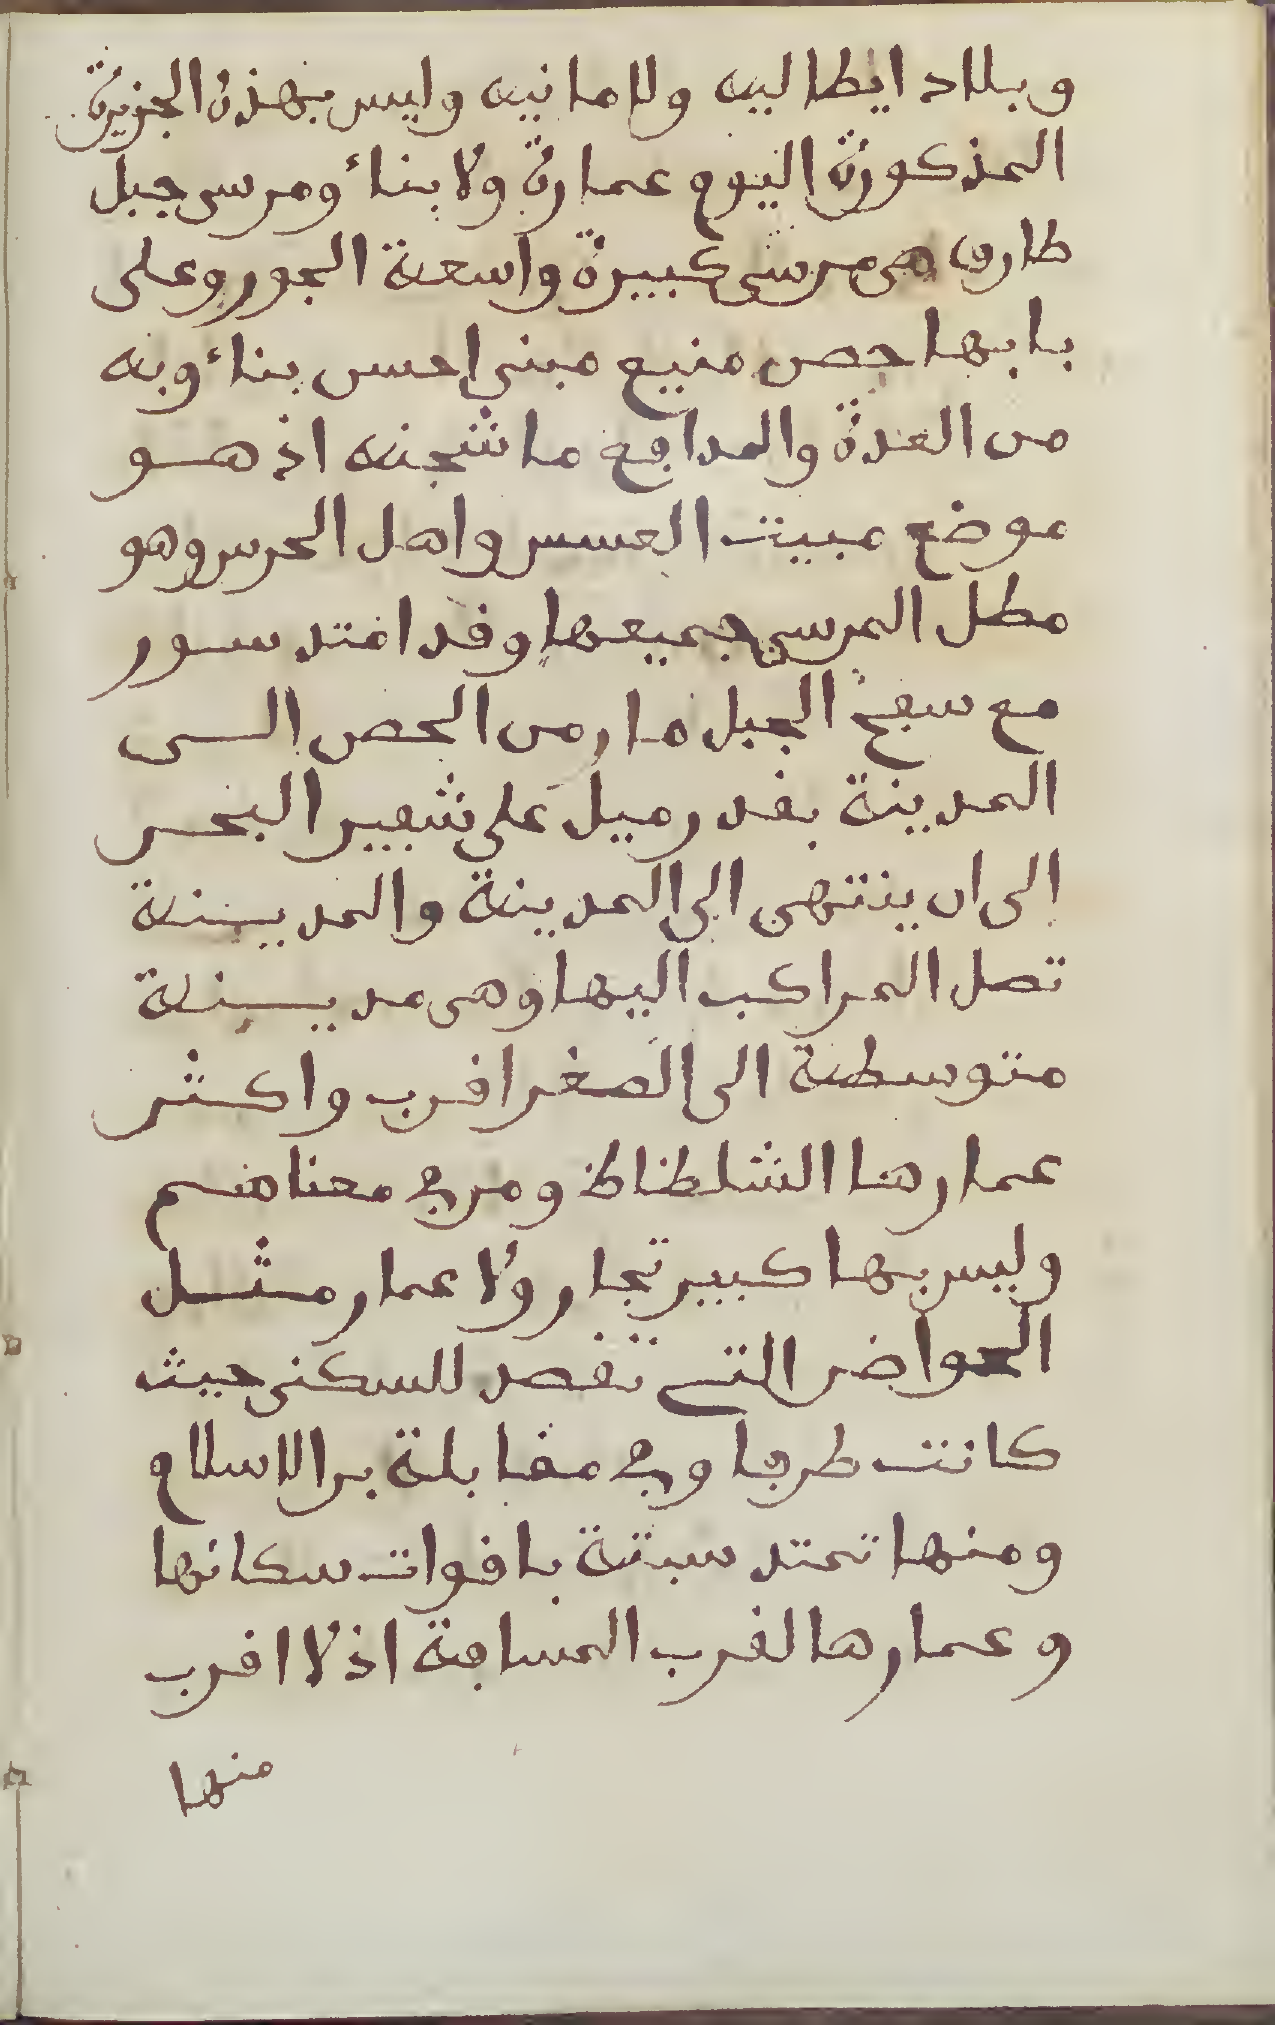 وبلاد ايطاليه ولامانيه وليس بهذه الجزيرة
المذكورة اليوم عمارة ولا بناء ومرسى جبل
طارق هي مرسى كبيرة واسعة الجور وعلى
بابها حصن منيع مبنى احسن بناء وبه
من العدة والمدافع ما شحنه اذ هو
موضع مبيت العسس واهل الحرس وهو
مطل المرسى جميعها وقد امتد سور
مع سفح الجبل مار من الحصن الى
المدينة بقدر ميل على شفير البحر
الى ان ينتهى الى المدينة والمدينة
تصل المراكب اليها وهى مدينة
متوسطة الى الصغر اقرب واكثر
عمارها الشلطاط ومن فى معناهم
وليس بها كبير تجار ولا عمار مثل
الحواضر التى تقصد للسكنى حيث
كانت طرفا وفى مقابلة بر الاسلام
ومنها تمتد سبتة باقوات سكانها
وعمارها لقرب المسافة اذ لا اقرب
منها